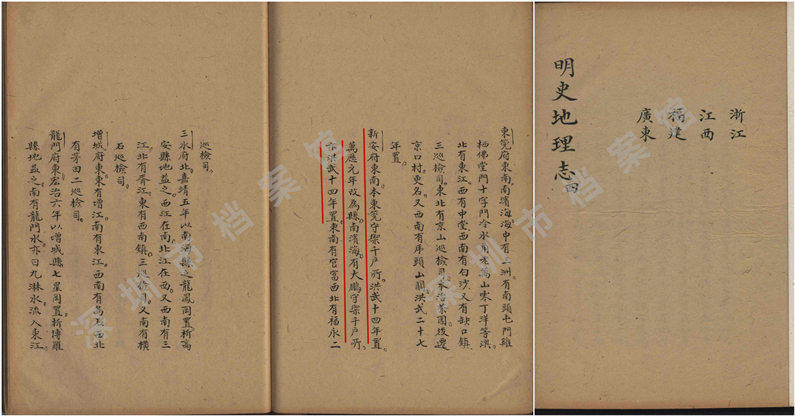 明史地理志四
浙江
江西
福建
廣東
東莞府東南南濱海海中有三洲有南頭屯門雞
栖佛堂門十字門冷水角老萬山零丁洋等澳
北有東江西有中堂西南有白沙又有缺口鎮
三巡檢司東北有京山巡檢司本治茶園後遷
京口村更名又西南有虎頭山關洪武二十七
年置
新安府東南本東莞守禦千戶所洪武十四年置
萬曆元年改為縣南濱海有大鵬守禦千戶所
亦洪武十四年置東南有官富西北有福永二
巡檢司
三水府北嘉靖五年以南海縣之龍鳳岡置析高
要縣地益之西江在南北江在西又西南有三
江北有胥江東有西南鎮三巡檢司又南有橫
石巡檢司
增城府東東有增江南有東江西南有烏石西北
有茅田二巡檢司
龍門府東弘治六年以增城縣七星岡置析博羅
縣地益之南有龍門水亦曰九淋水流入東江
深圳市档案馆
深圳市档案馆